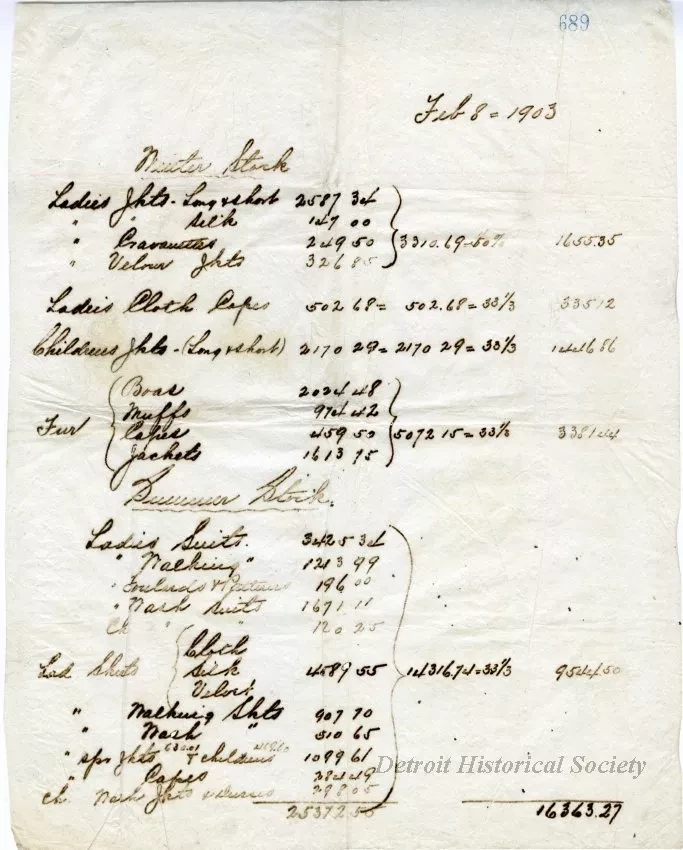 689
Feb 8 = 1903
Winter Stock
Ladies Jkts - Long & short 2587 34
" " Silk 147 00
" Cravanettes 249 50 3310.69 = 50% 1655.35
" Velour Jkts 326 85
Ladies Cloth Capes 502 68 = 502.68 = 33 1/3 335 12
Childrens Jkts - (Long & short) 2170 29 = 2170 29 = 33 1/3 1446 86
Boas 2024 48
Muffs 974 42
Fur Capes 459 50 5072 15 = 33 1/3 3381 44
Jackets 1613 75
Summer Stock
Ladies Suits. 3425 34
" Walking " 1213 99
" & 196 00
" Wash Suits 1671 11
Ch " " 120 25
Cloth
Lad Skirts Silk 4589 55 14316.74 = 33 1/3 9544 50
Velvet
" Walking Skts 907 70
" Wash " 510 65
" spr Jkts & childrens 1099 61
" Capes 284 49
Ch. Wash Jkts & 298 05
Detroit Historical Society
25372 55 16363.27